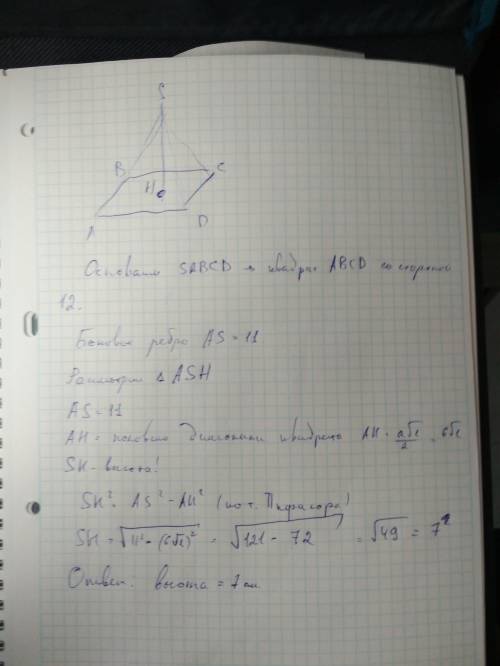 S
B
C
H
A
D
Основание SABCD – квадрат ABCD со стороной
12.
Боковое ребро AS = 11
Рассмотрим Δ ASH
AS = 11
AH = половине диагонали квадрата AH = a√2/2 = 6√2
SH – высота!
SH² = AS² – AH² (по т. Пифагора)
SH = √11² – (6√2)² = √121 – 72 = √49 = 7
Ответ: высота = 7 см